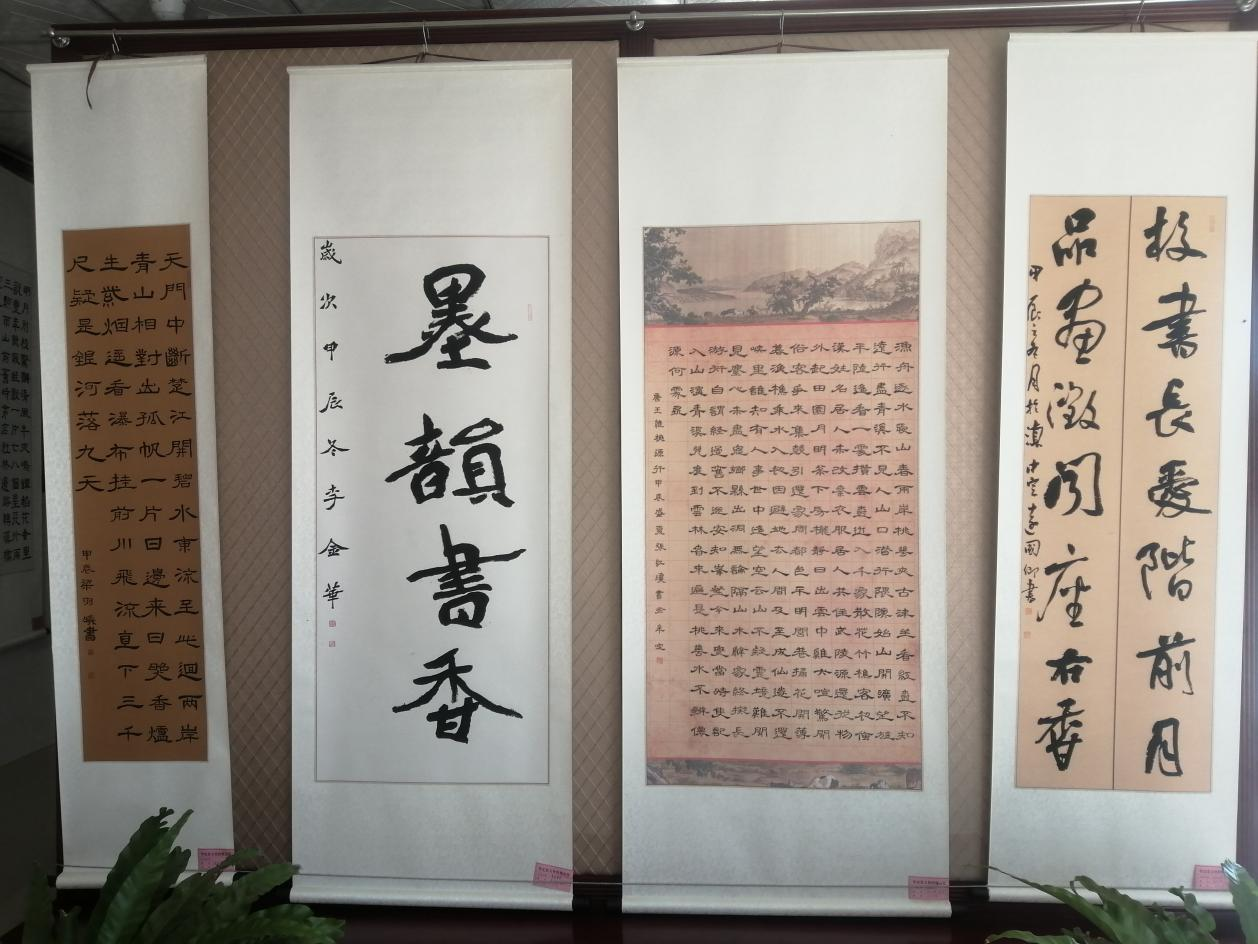 天門中斷楚江開碧水東流至此迴兩岸
青山相對出孤帆一片日邊來日照香爐
生紫烟遥看瀑布挂前川飛流直下三千
尺疑是銀河落九天
甲辰梁羽書
墨韻書香
歲次甲辰冬李金華
漁舟逐水愛山春兩岸桃花夾古津坐看紅樹不知
遠行盡青溪不見人山口潜行隈隩始山開曠望旋
平陸遥看一處攢雲樹近入千家散花竹樵客初傳
漢姓名居人未改秦衣服居人共住武陵源還從物
外起田園月明松下房櫳静日出雲中雞犬喧驚聞
俗客爭來集競引還家問都邑平明閭巷掃花開薄
暮漁樵乘水入初因避地去人間及至成仙遂不還
峡里誰知有人事世中遥望空云山不疑靈境難聞
見塵心未盡思鄉縣出洞無論隔山水辭家終擬長
游衍自謂經過舊不迷安知峯壑今來變當時隻記
入山深青溪幾度到雲林春來遍是桃花水不辨僊
源何處尋
唐王維桃源行甲辰盛夏張瓊書
校書長愛階前月
品畫微聞座右香
甲辰之冬月於滇中國卿書